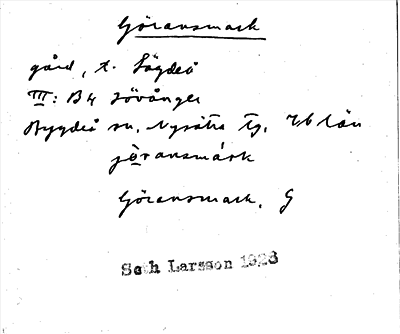 Göransmark
gård, t. Sögdeå
III: B4 Lövånger
Bygdeå sn, Nysätra tg. Vb län
jöransmark
Göransmark, G
Seth Larsson 1928